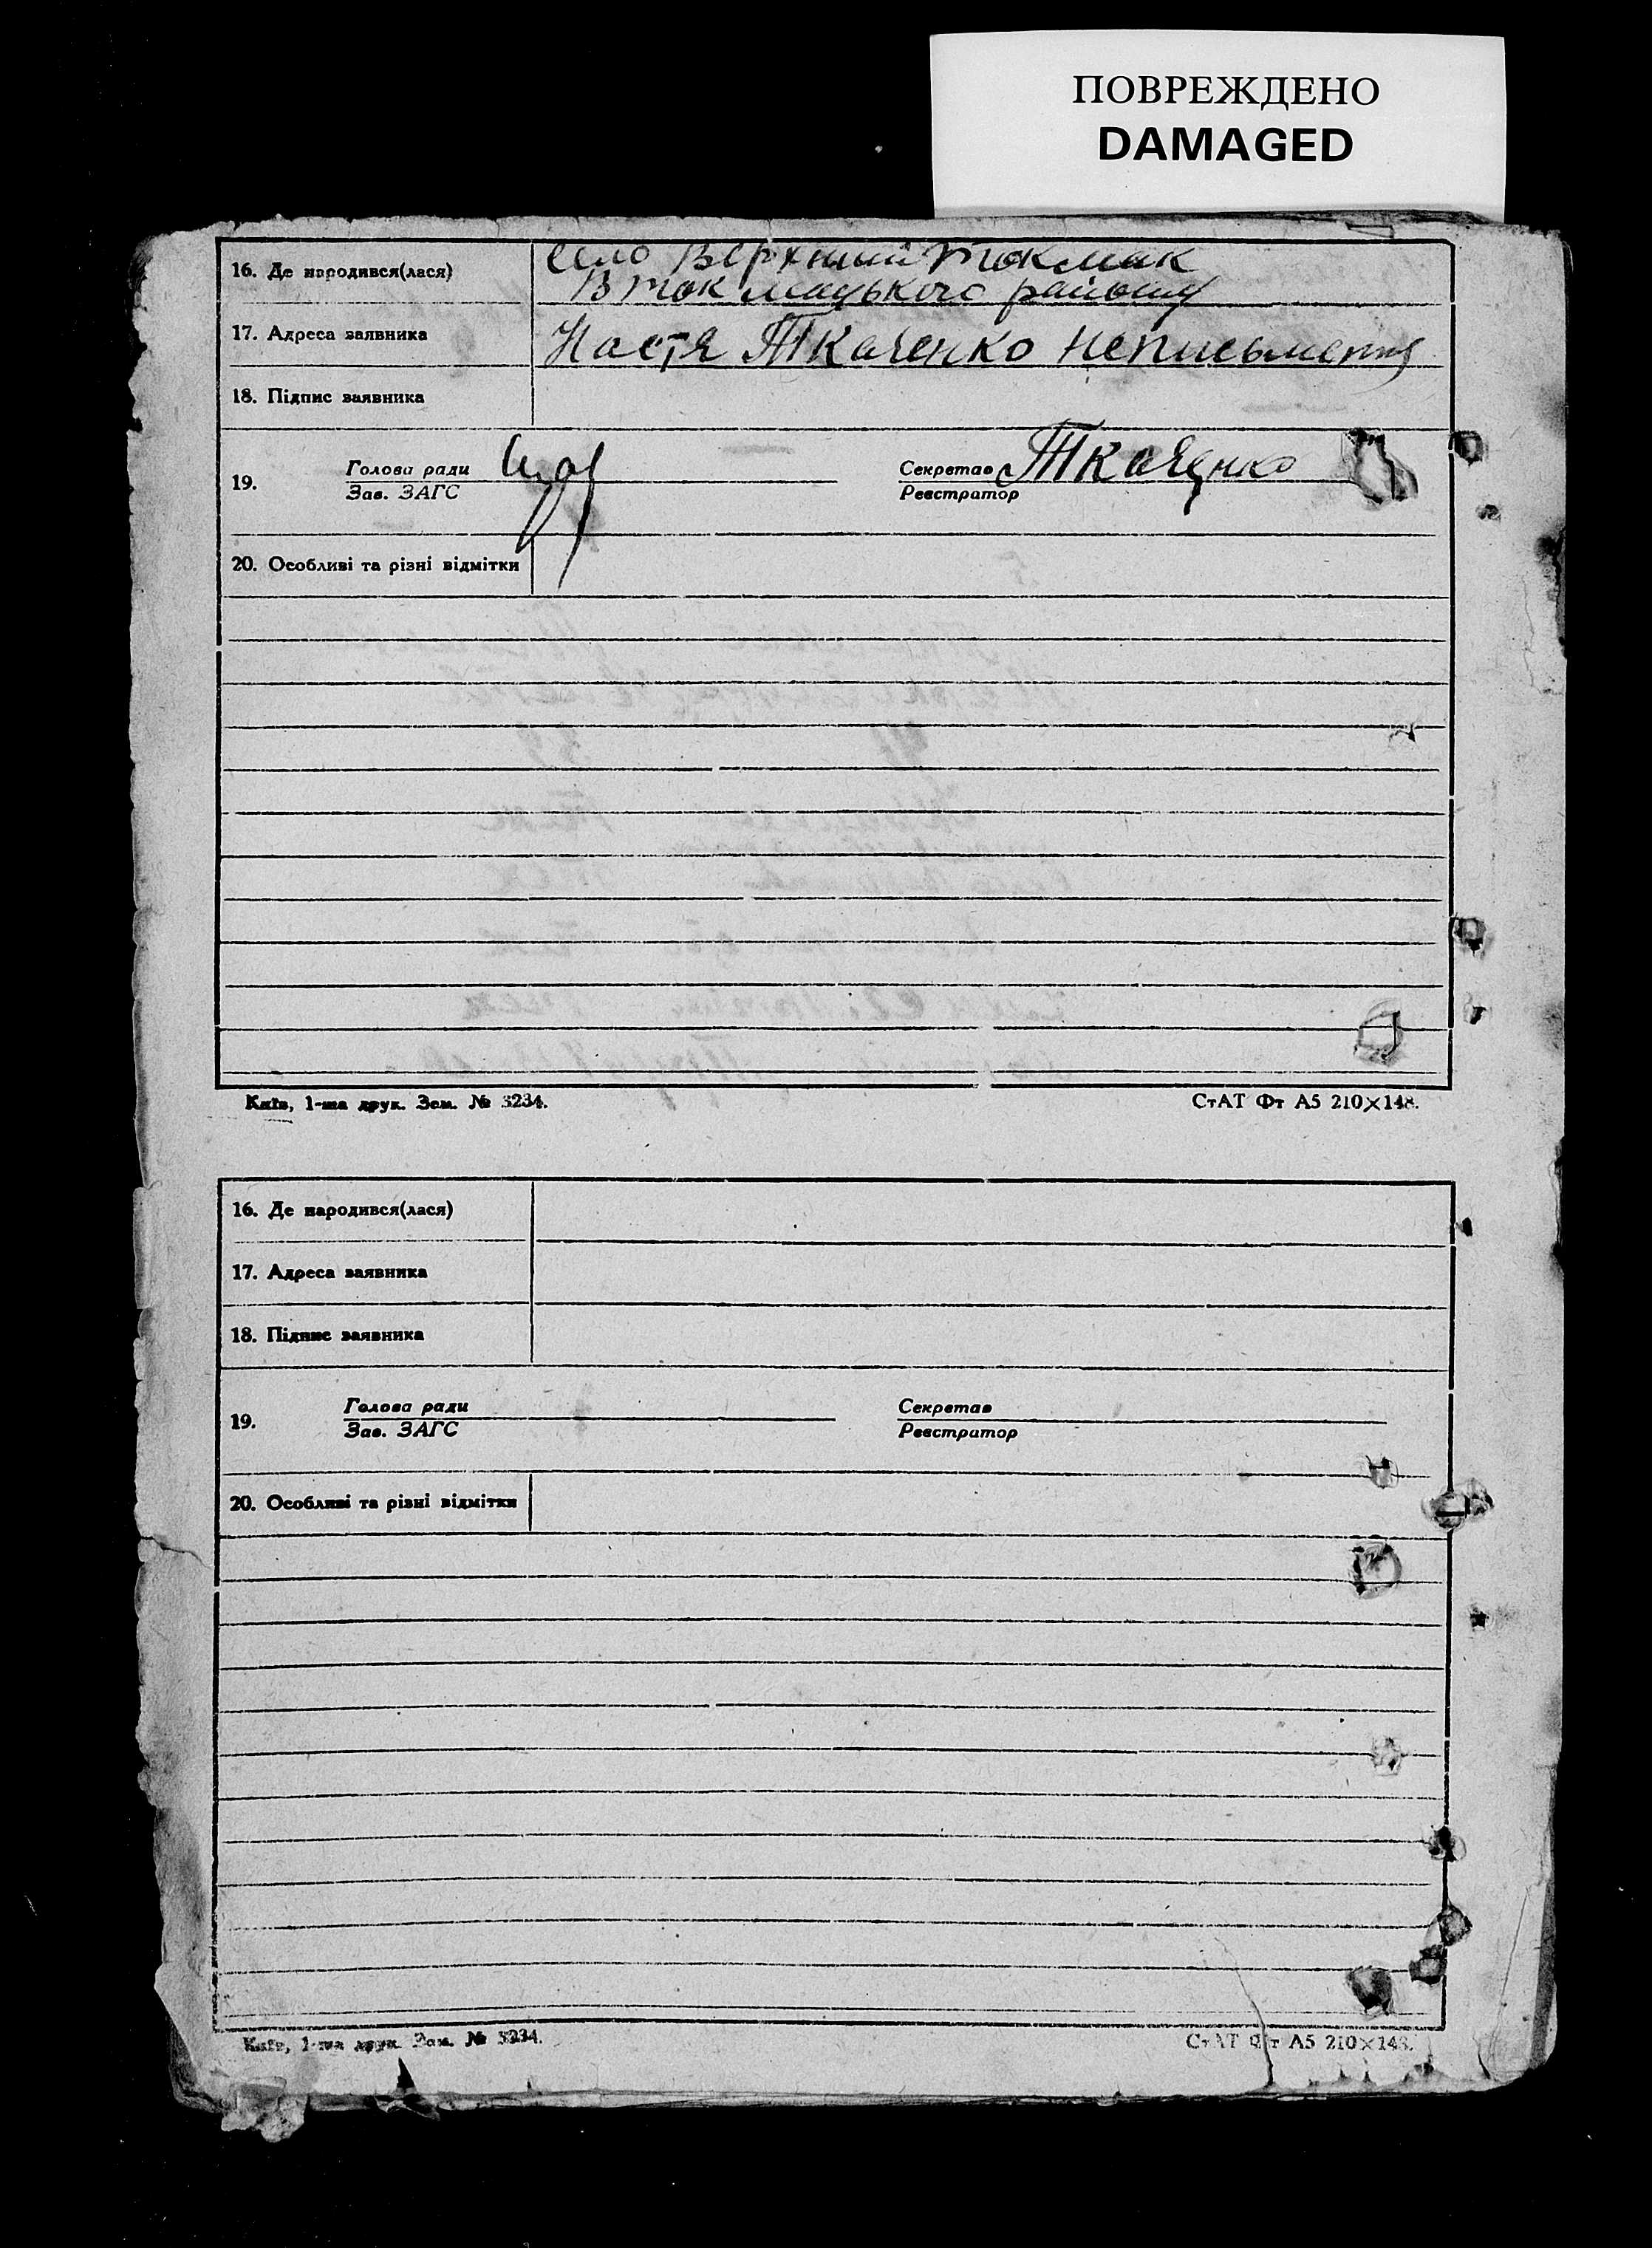 ПОВРЕЖДЕНО
DAMAGED
16. Де народився(лася)
село Верхний Токмак
В Токмацького району
17. Адреса заявника
Настя Ткаченко неписьменна
18. Підпис заявника
19. Голова ради Секретар Ткаченко
Зав. ЗАГС Реєстратор
20. Особливі та різні відмітки
Київ, 1-ша друк. Зам. № 3234. СтАТ Фт А5 210×148.
16. Де народився(лася)
17. Адреса заявника
18. Підпис заявника
19. Голова ради Секретар
Зав. ЗАГС Реєстратор
20. Особливі та різні відмітки
Київ, 1-ша друк. Зам. № 3234. СтАТ Фт А5 210×148.